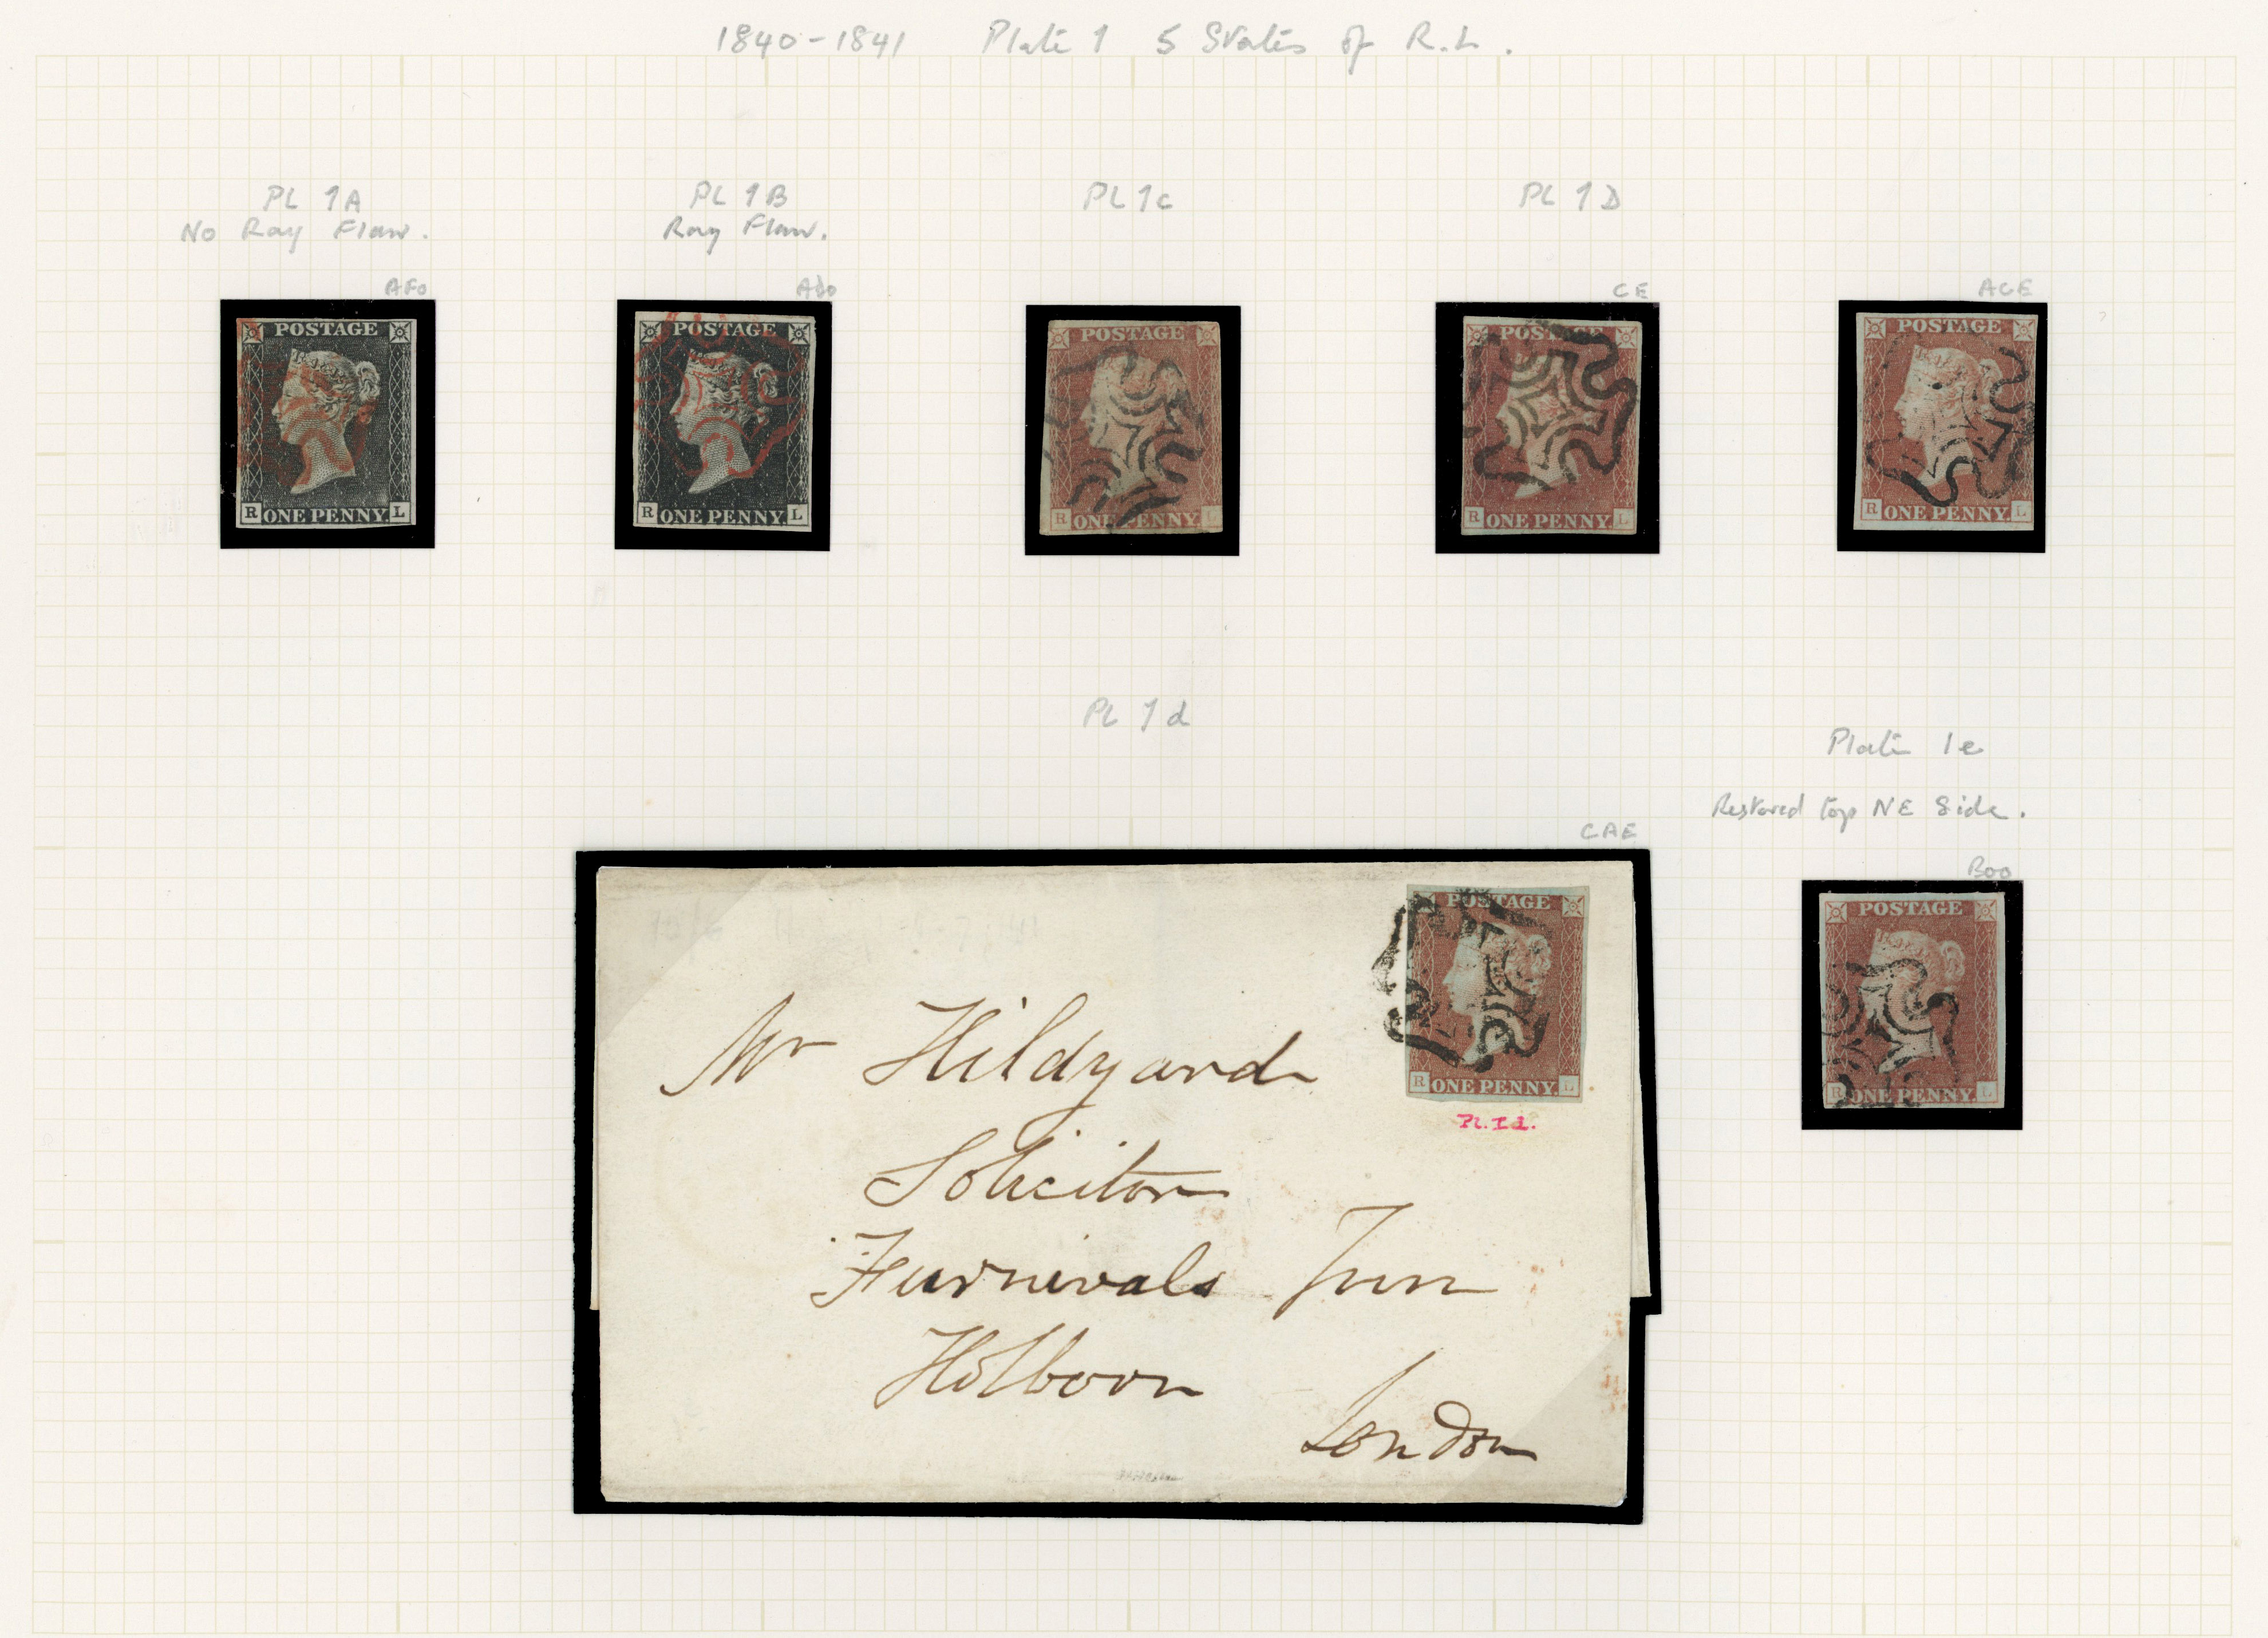 1840-1841 Plate 1 5 States of R.L.
PL 1A
No Ray Flaw.
AFo
POSTAGE
R ONE PENNY. L
PL 1B
Ray Flaw.
POSTAGE
R ONE PENNY. L
PL 1c
POSTAGE
R ONE PENNY. L
PL 1D
CE
POSTAGE
R ONE PENNY. L
ACE
POSTAGE
R ONE PENNY. L
PL 1d
CAE
POSTAGE
R ONE PENNY. L
Pl. I d.
Mr Hildyard
Solicitor
Furnivals Inn
Holborn
London
Plate 1e
Restored top NE Side.
Boo
POSTAGE
R ONE PENNY. L